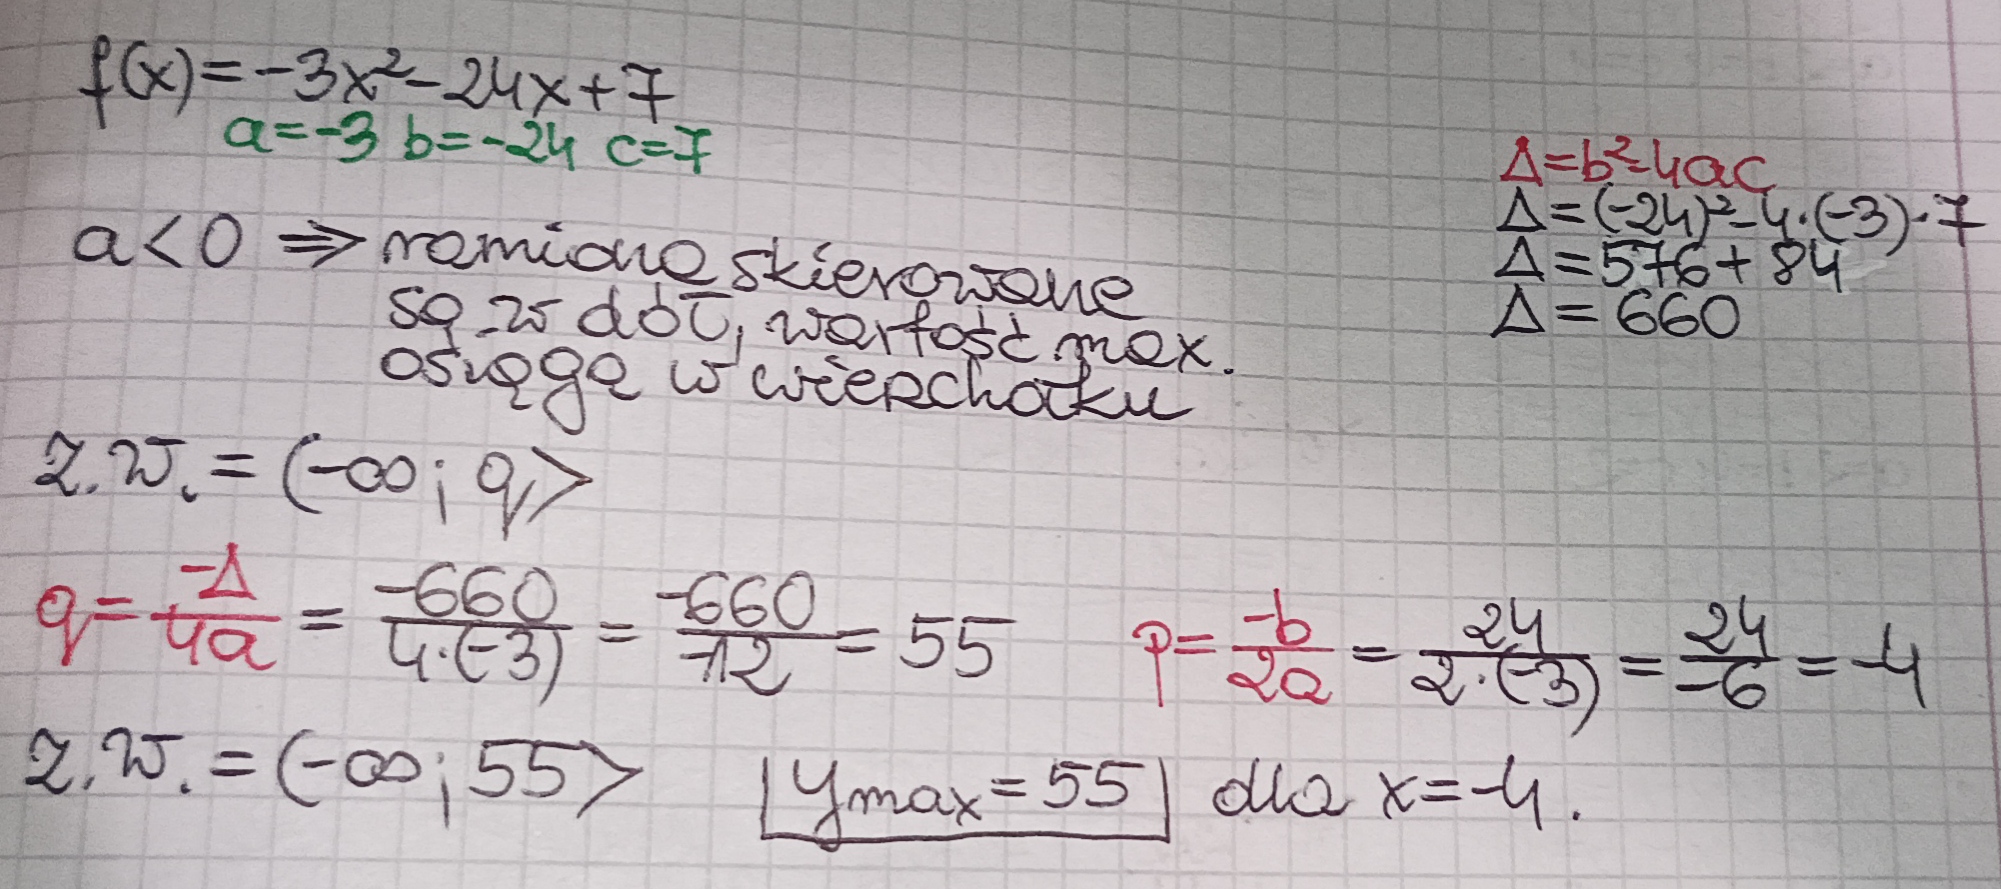 f(x)=-3x²-24x+7
a=-3 b=-24 c=7
Δ=b²-4ac
Δ=(-24)²-4·(-3)·7
Δ=576+84
Δ=660
a<0 ⇒ ramiona skierowane
są w dół, wartość max.
osiąga w wierzchołku
z.w.=(-∞; q>
q=-Δ/4a = -660/4·(-3) = -660/-12 = 55 p=-b/2a = 24/2·(-3) = 24/-6 = -4
z.w.=(-∞; 55> ymax=55 dla x=-4.